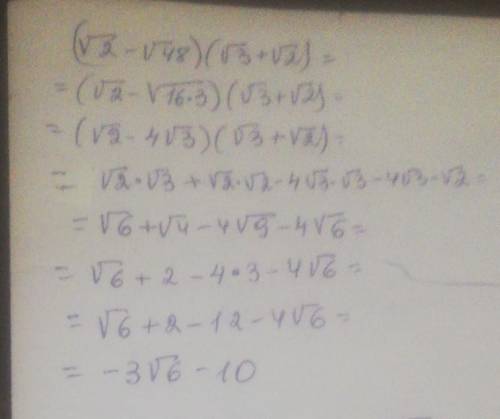 (√2 - √48)(√3+√2) =
= (√2 - √16·3)(√3+√2) =
= (√2 - 4√3)(√3+√2) =
= √2·√3 + √2·√2 - 4√3·√3 - 4√3-√2 =
= √6 + √4 - 4√9 - 4√6 =
= √6 + 2 - 4·3 - 4√6 =
= √6 + 2 - 12 - 4√6 =
= -3√6 - 10